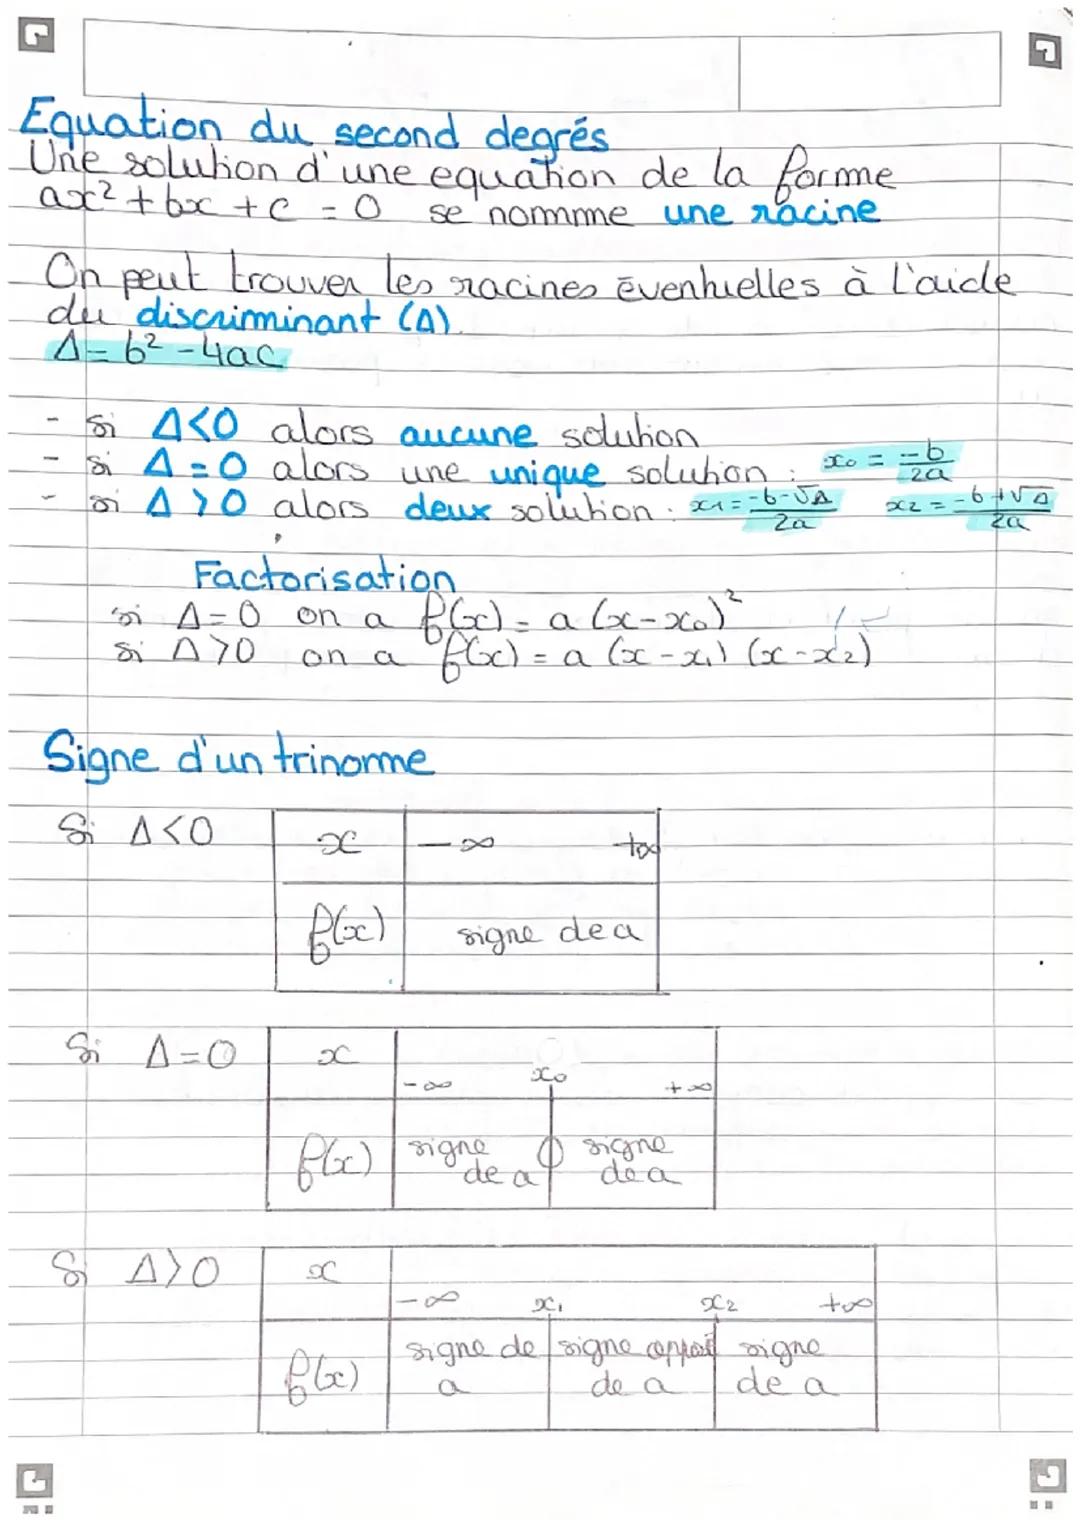 Equation du second degrés
Une solution d'une equation de la forme
ax² + bx + c = 0 se nommme une racine
On peut trouver les racines éventuelles à l'aide
du discriminant (Δ).
Δ = b² - 4ac
- si Δ<0 alors aucune solution
- si Δ = 0 alors une unique solution : x₀ = -b/2a
- si Δ > 0 alors deux solution : x1 = -b-√Δ/2a x2 = -b+√Δ/2a
Factorisation
si Δ=0 on a f(x) = a (x-x₀)²
si Δ>0 on a f(x) = a (x-x₁) (x-x₂)
Signe d'un trinome
Si Δ<0
x -∞ +∞
f(x) signe de a
Si Δ=0
x -∞ x₀ +∞
f(x) signe de a 0 signe de a
Si Δ>0
x -∞ x₁ x₂ +∞
f(x) signe de a signe opposé de a signe de a